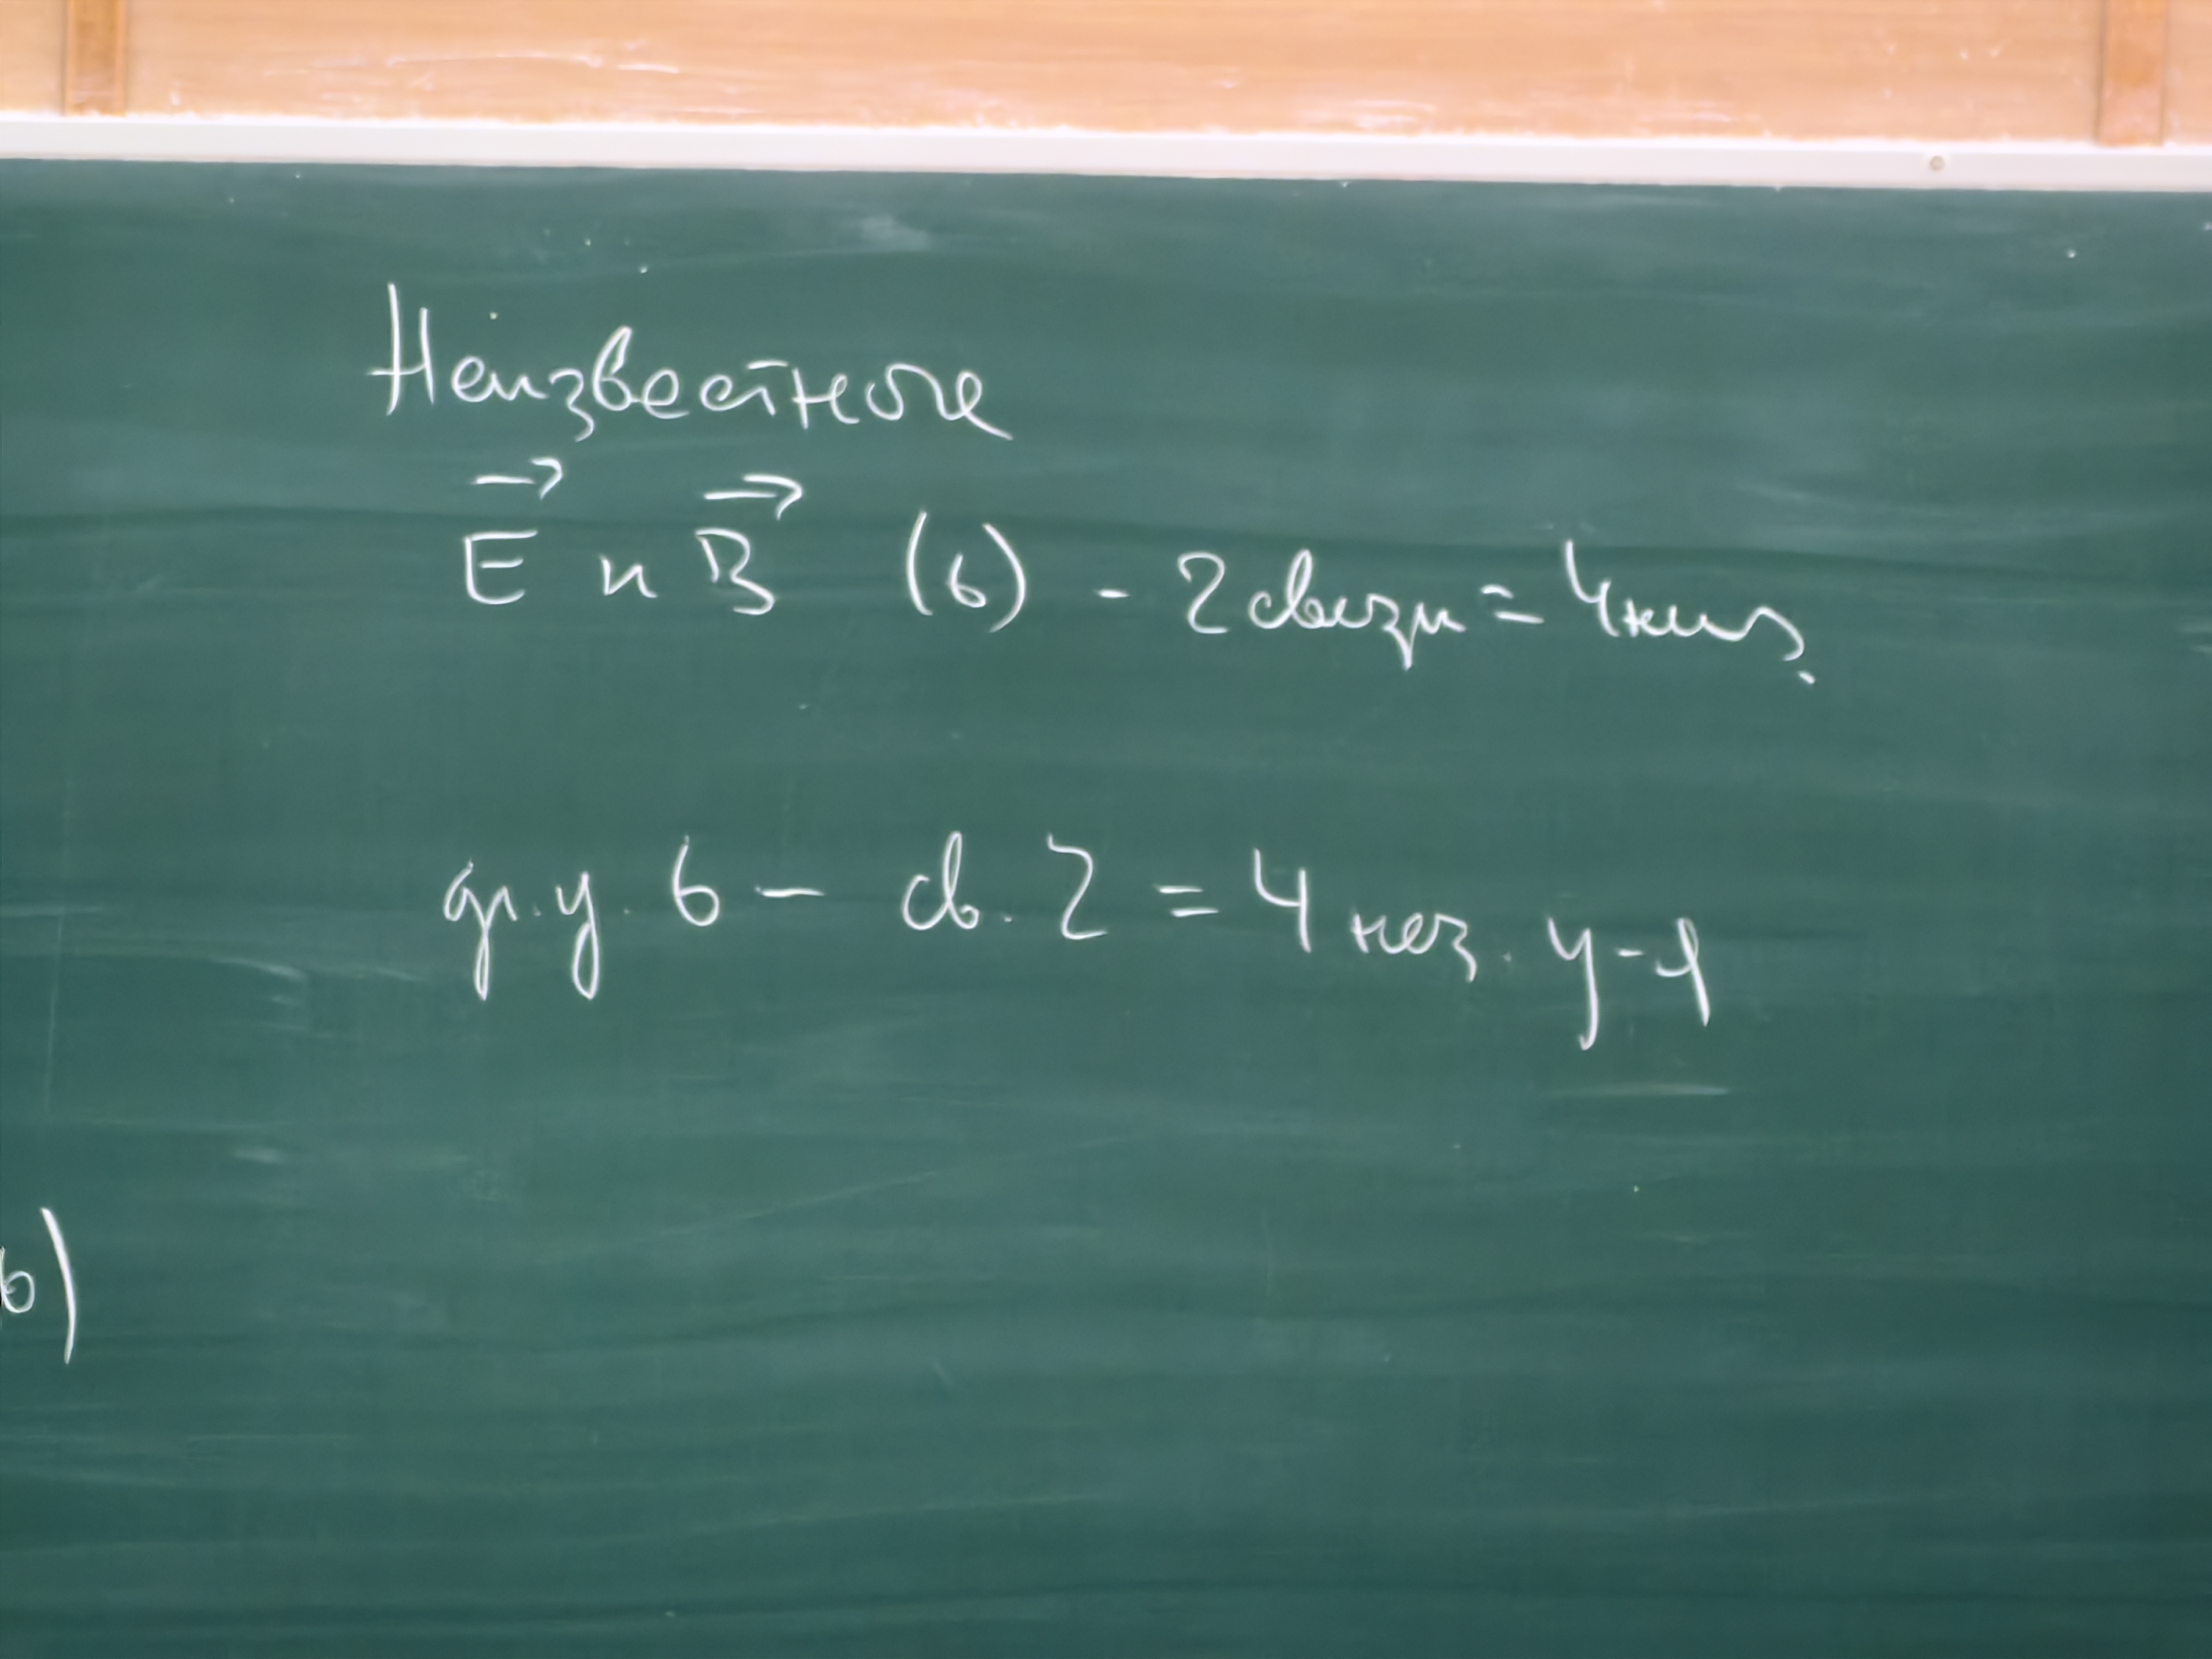 Неизвестные
E⃗ и B⃗ (6) - 2 связи = 4 неиз.
гр. у. 6 - св. 2 = 4 нез. у-я
6)